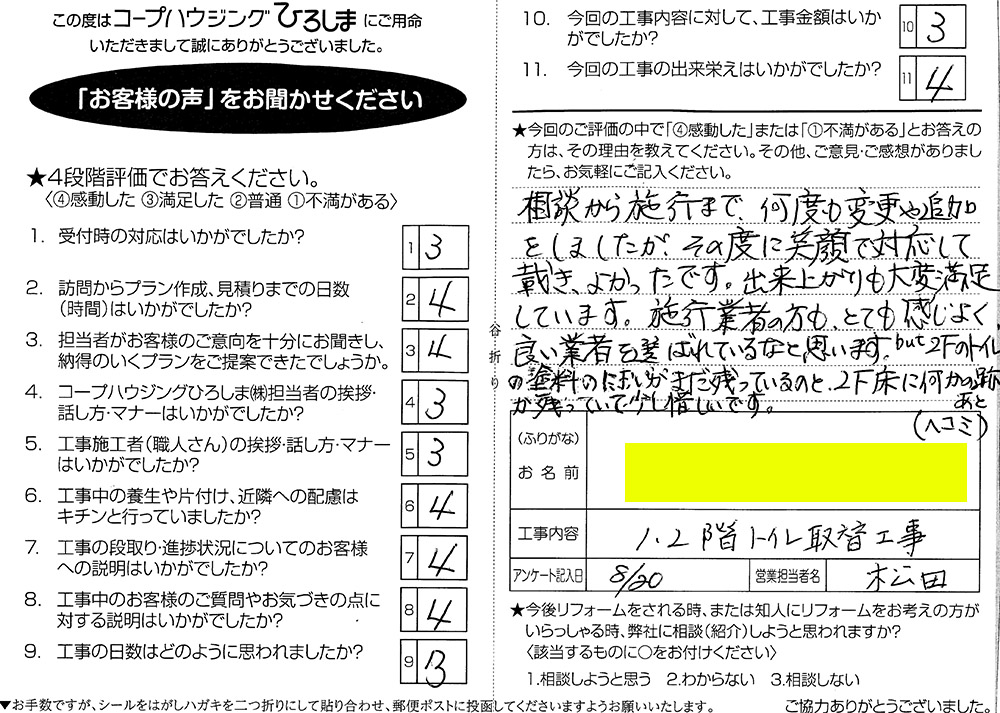 この度はコープハウジングひろしまにご用命
いただきまして誠にありがとうございました。
「お客様の声」をお聞かせください
★4段階評価でお答えください。
〈④感動した ③満足した ②普通 ①不満がある〉
1. 受付時の対応はいかがでしたか?
1 3
2. 訪問からプラン作成、見積りまでの日数
(時間)はいかがでしたか?
2 4
3. 担当者がお客様のご意向を十分にお聞きし、
納得のいくプランをご提案できたでしょうか。
3 4
4. コープハウジングひろしま㈱担当者の挨拶・
話し方・マナーはいかがでしたか?
4 3
5. 工事施工者(職人さん)の挨拶・話し方・マナー
はいかがでしたか?
5 3
6. 工事中の養生や片付け、近隣への配慮は
キチンと行っていましたか?
6 4
7. 工事の段取り・進捗状況についてのお客様
への説明はいかがでしたか?
7 4
8. 工事中のお客様のご質問やお気づきの点に
対する説明はいかがでしたか?
8 4
9. 工事の日数はどのように思われましたか?
9 3
▼お手数ですが、シールをはがしハガキを二つ折りにして貼り合わせ、郵便ポストに投函してくださいますようお願いいたします。
谷折り
10. 今回の工事内容に対して、工事金額はいか
がでしたか?
10 3
11. 今回の工事の出来栄えはいかがでしたか?
11 4
★今回のご評価の中で「④感動した」または「①不満がある」とお答えの
方は、その理由を教えてください。その他、ご意見・ご感想がありまし
たら、お気軽にご記入ください。
相談から施行まで、何度も変更や追加
をしましたが、その度に笑顔で対応して
戴き、よかったです。出来上がりも大変満足
しています。施行業者の方も、とても感じよく
良い業者を選ばれているなと思います。but 2Fのトイレ
の塗料のにおいがまだ残っているのと、2F床に何かの跡
が残っていて少し惜しいです。 あと
(ヘコミ)
(ふりがな)
お名前
工事内容 1.2階トイレ取替工事
アンケート記入日 8/20 営業担当者名 松田
★今後リフォームをされる時、または知人にリフォームをお考えの方が
いらっしゃる時、弊社に相談(紹介)しようと思われますか?
〈該当するものに○をお付けください〉
1.相談しようと思う 2.わからない 3.相談しない
ご協力ありがとうございました。